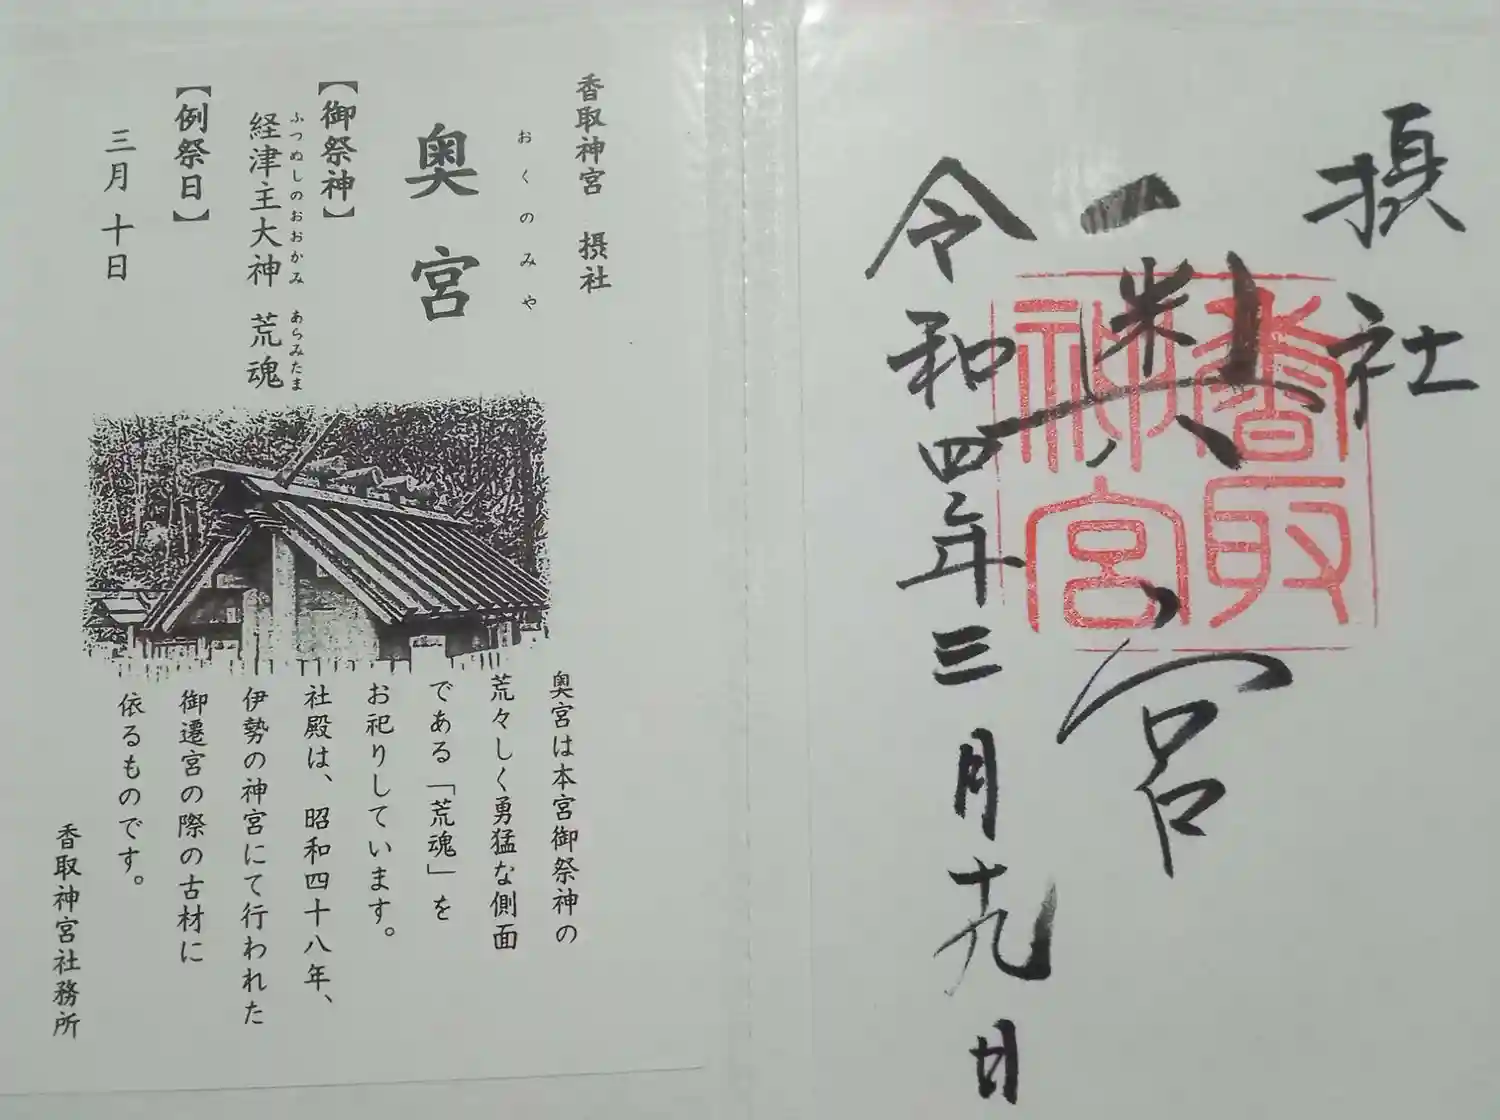 摂社
奥宮
香取神宮
令和四年三月十九日
香取神宮 摂社
おくのみや
奥宮
【御祭神】
ふつぬしのおおかみ あらみたま
経津主大神 荒魂
【例祭日】
三月十日
奥宮は本宮御祭神の
荒々しく勇猛な側面
である「荒魂」を
お祀りしています。
社殿は、昭和四十八年、
伊勢の神宮にて行われた
御遷宮の際の古材に
依るものです。
香取神宮社務所